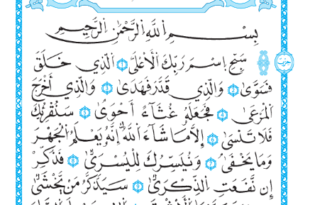 بِسْمِ اللَّهِ الرَّحْمَٰنِ الرَّحِيمِ
سَبِّحِ اسْمَ رَبِّكَ الْأَعْلَى ۝ الَّذِي خَلَقَ
فَسَوَّىٰ ۝ وَالَّذِي قَدَّرَ فَهَدَىٰ ۝ وَالَّذِي أَخْرَجَ
الْمَرْعَىٰ ۝ فَجَعَلَهُ غُثَاءً أَحْوَىٰ ۝ سَنُقْرِئُكَ
فَلَا تَنْسَىٰ ۝ إِلَّا مَا شَاءَ اللَّهُ إِنَّهُ يَعْلَمُ الْجَهْرَ
وَمَا يَخْفَىٰ ۝ وَنُيَسِّرُكَ لِلْيُسْرَىٰ ۝ فَذَكِّرْ
إِنْ نَفَعَتِ الذِّكْرَىٰ ۝ سَيَذَّكَّرُ مَنْ يَخْشَىٰ